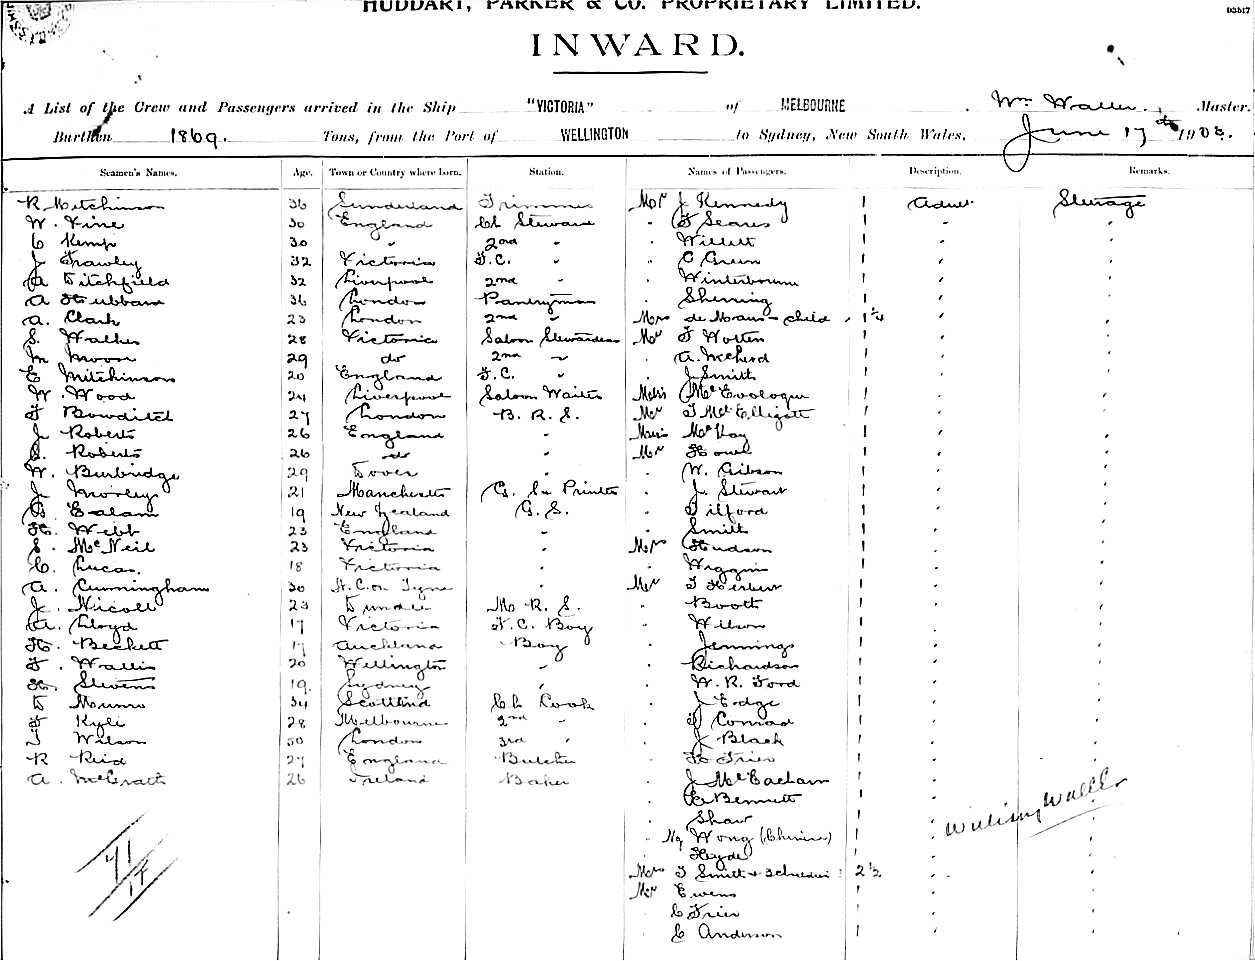 HUDDART, PARKER & CO. PROPRIETARY LIMITED.
INWARD.
A List of the Crew and Passengers arrived in the Ship "VICTORIA" of MELBOURNE Wm Waller, Master.
Burthen 1869. Tons, from the Port of WELLINGTON to Sydney, New South Wales, June 17th 1908.
Seamen's Names. Age. Town or Country where born. Station. Names of Passengers. Description. Remarks.
R Mitchinson 36 Sunderland Trimmer Mr J Kennedy 1 Adult Steerage
W. Fine 30 England Ch Steward " F Seares 1 " "
C Kemp 30 " 2nd " " Willett 1 " "
J Frawley 32 Victoria F.C. " " C Green 1 " "
A Ditchfield 32 Liverpool 2nd " " Winterbourne 1 " "
A Hubbard 36 London Pantryman " Sherring 1 " "
A. Clark 23 London 2nd " Mrs de Moans + child 1 1/4 " "
S. Walker 28 Victoria Saloon Stewardess Mr F Wotten 1 " "
M Moon 29 do 2nd " " A. McLeod 1 " "
E Mitchinson 20 England F.C. " " J Smith 1 " "
W. Wood 24 Liverpool Saloon Waiter Miss McEvologue 1 " "
F Bowditch 27 London B. R. S. Mr T McElligott 1 " "
J Roberts 26 England " Miss McKay 1 " "
S. Roberts 26 do " Mr Howe 1 " "
W. Burbridge 29 Dover " " W. Gibson 1 " "
J Morley 21 Manchester G. S. Printer " J. Stewart 1 " "
B Ealam 19 New Zealand G. S. " Tilford 1 " "
H. Webb 23 England " " Smith 1 " "
S. McNeil 23 Victoria " Mrs Hudson 1 " "
C. Lucas. 18 Victoria " " Wiggin 1 " "
A. Cunningham 30 N. C. on Tyne " Mr T Herbert 1 " "
J. Nicoll 23 Dundee M R. S. " Booth 1 " "
A. Lloyd 17 Victoria F. C. Boy " Wilson 1 " "
H. Beckett 17 Auckland " Boy " Jennings 1 " "
F. Wallis 20 Wellington " " Richardson 1 " "
H. Stevens 19. Sydney " " W. R. Ford 1 " "
D Munro 34 Scotland Ch Cook " J Edge 1 " "
F Kyle 28 Melbourne 2nd " " F Conrad 1 " "
J Wilson 50 London 3rd " " J Black 1 " "
R Reid 27 England Butcher " H Frier 1 " "
A. McGrath 26 Ireland Baker " J McEacharn 1 " "
" G Bennett 1 " "
" Shaw 1 " "
William Waller
" Ng Wong (Chinese) 1 " "
" Hyde 1 " "
71/14
Mrs T Smith + 3 children 2 1/2 " "
Mr Ewens 1 " "
" C Frier 1 " "
" C Anderson 1 " "